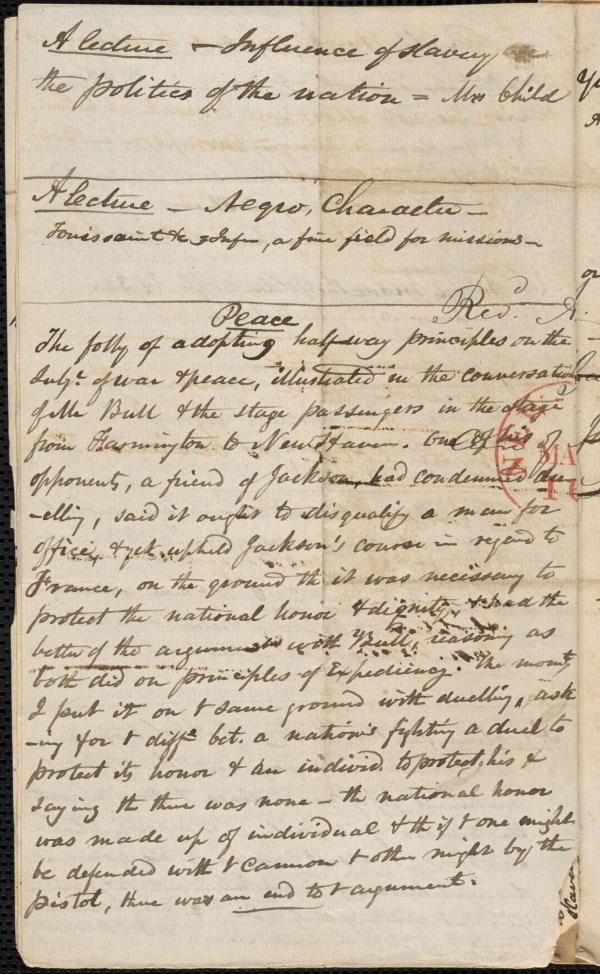 A lecture - Influence of slavery on
the politics of the nation = Mrs Child
A lecture - Negro, Character -
Toussaint &c, a fine field for missions -
Peace
Recd. A.
The folly of adopting half-way principles on the
Subjt. of war & peace, illustrated in the conversation
of Mr Bull & the stage passengers in the stage
from Farmington to New Haven. One of his
opponents, a friend of Jackson, had condemned du-
-elling, said it ought to disqualify a man for
office, & yet upheld Jackson's course in regard to
France, on the ground th it was necessary to
protect the national honor & dignity & had the
better of the argument with Bull, reasoning as
both did on principles of Expediency. The momt.
I put it on t same ground with duelling, ask
-ing for t diffe bet. a nation's fighting a duel to
protect its honor & an individ. to protect his &
saying th there was none - th national honor
was made up of individual & th if t one might
be defended with t cannon t other might by the
pistol, there was an end to t argument.
MA